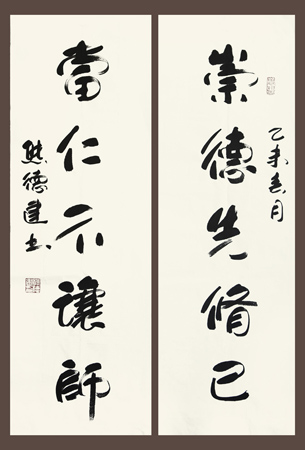 乙未春月
崇德先脩己
當仁不讓師
熊德建书